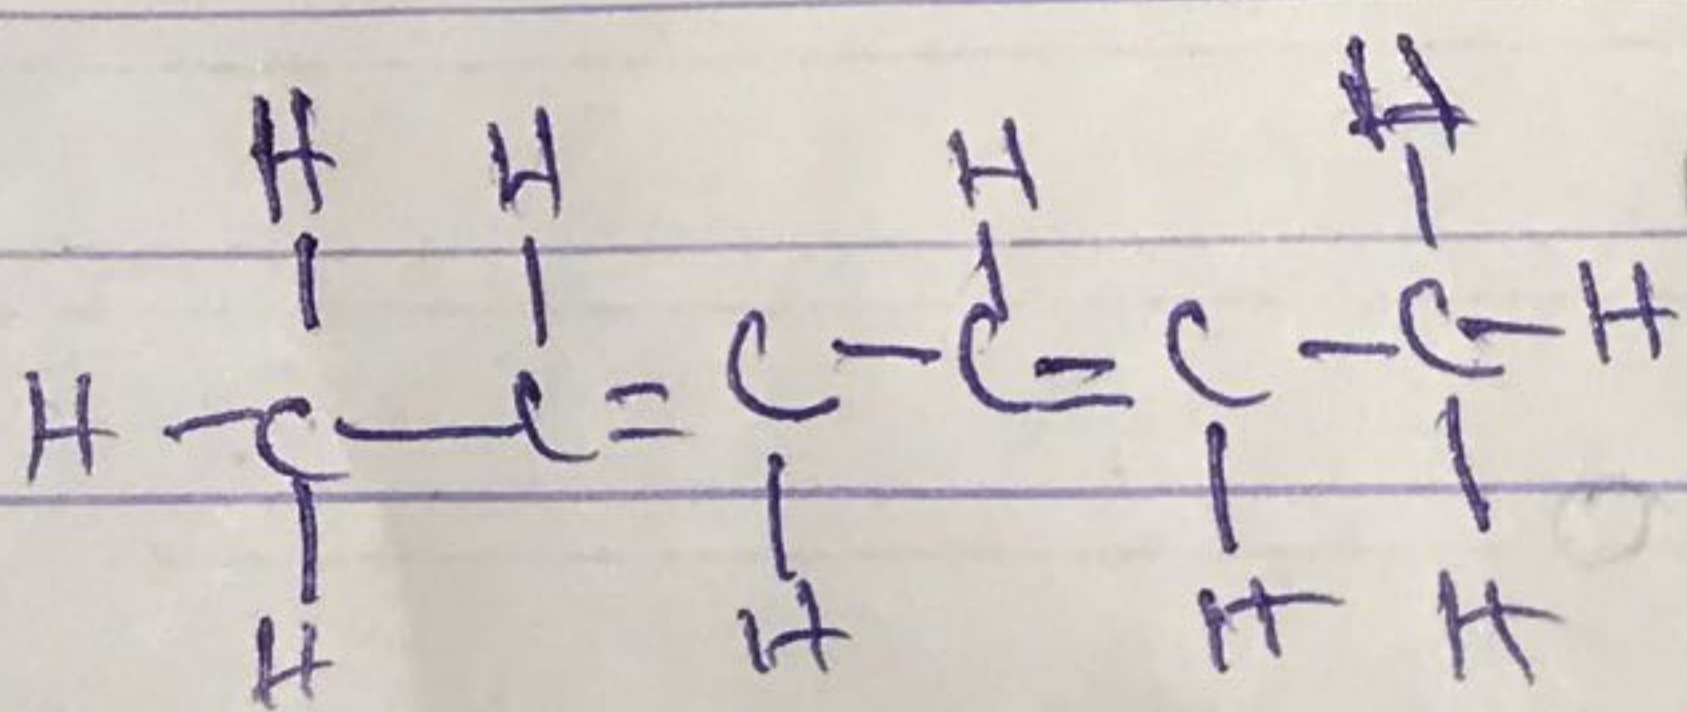 H H H H
H - C - C = C - C = C - C - H
H H H H